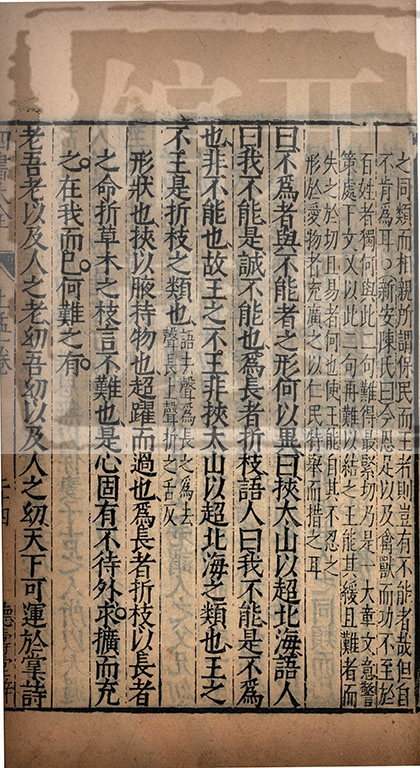 之同類而相親所謂保民而王者則豈有不能者哉但自
不肯為耳○新安陳氏曰今恩足以及禽獸而功不至於
百姓者獨何與此一句難得最緊切乃是一大章文意警
策處下文又以此二句再難以結之王能其緩且難者而
失之於切且易者何也使王能自其不忍之
形於愛物者充廣之以仁民待舉而措之耳
曰不為者與不能者之形何以異曰挾太山以超北海語人
曰我不能是誠不能也為長者折枝語人曰我不能是不為
也非不能也故王之不王非挾太山以超北海之類也王之
不王是折枝之類也語去聲為長之為去聲長上聲折之舌反
形狀也挾以腋持物也超躍而過也為長者折枝以長者
之命折草木之枝言不難也是心固有不待外求擴而充
之在我而已何難之有
老吾老以及人之老幼吾幼以及人之幼天下可運於掌詩
四書大全 上孟一卷 二十四